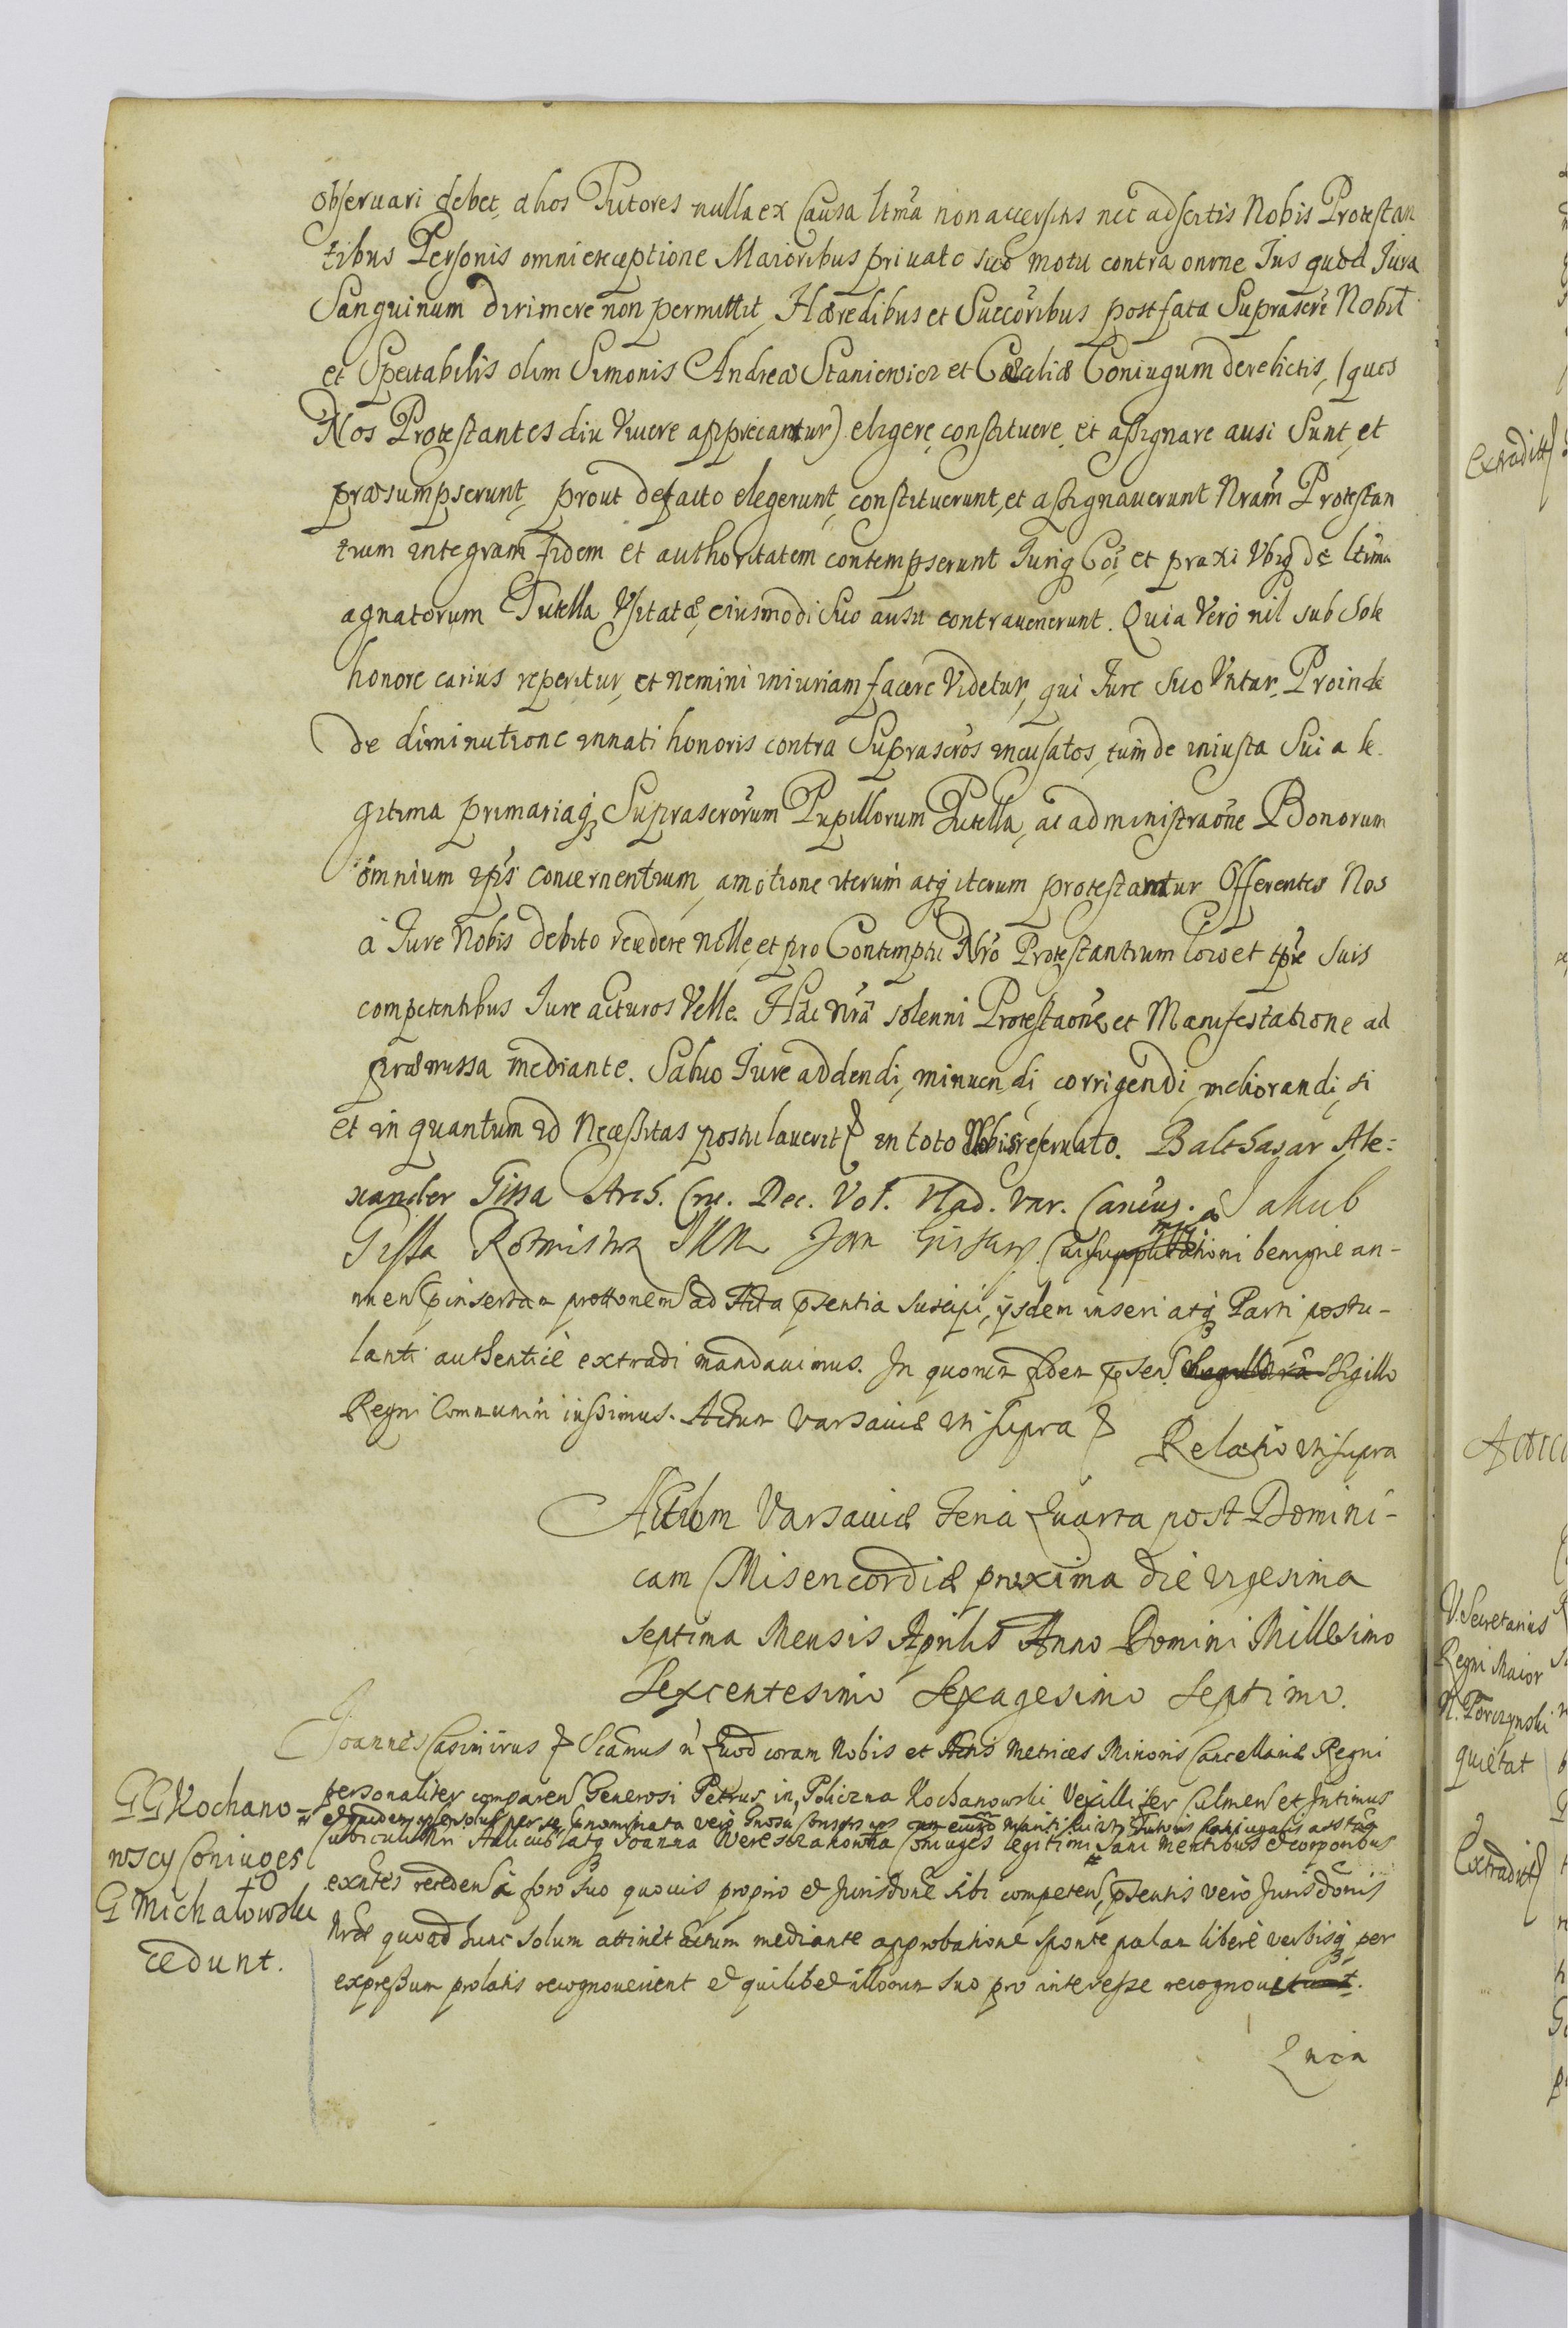 obseruari debet, alios Tutores nulla ex Causa ltma non accersitis nec adscitis Nobis Protestan
tibus Personis omni exceptione Maioribus priuato suo motu contra omne Jus quod Jura
Sanguinum dirimere non permittit, Hæredibus et Succoribus post fata Suprascri Nobil
et Spectabilis olim Simonis Andreæ Staniewicz et Cæciliæ Coniugum derelictis, (quos
Nos Protestantes diu Viuere apprecantur) eligere, constituere, et assignare ausi Sunt, et
præsumpserunt, prout defacto elegerunt, constituerunt, et assignauerunt Nram Protestan
tium integram fidem et authoritatem contempserunt Juriq Coi, et praxi Vbiq de ltima
agnatorum Tutella Vsitatæ, eiusmodi Suo ausu contrauenerunt. Quia Vero nil sub Sole
honore carius reperitur, et nemini iniuriam facere Videtur, qui Jure Suo Vtitur, Proinde
de diminutione innati honoris contra Suprascros incusatos, tum de iniusta Sui a le
gitima primariaq Suprascrorum Pupillorum Tutella, ac administraone Bonorum
omnium ipis concernentium, amotione iterum atq iterum protestantur Offerentes Nos
a Jure Nobis debito recedere Nolle, et pro Contemptu Nro Protestantium loco et tpre Suis
competentibus Jure acturos Velle. Hac nra solenni Protestaone et Manifestatione ad
præmissa mediante. Saluo Jure addendi, minuendi, corrigendi, meliorandi, si
et in quantum id Necessitas postulauerit in toto Nobis reseruato. Balthasar Ale-
xander Gissa Arch. Cru. Dec. Vol. Vlad. Var. Canus. Jakub
Gissa Rotmistrz JKM Jan Gissa mp. Cui supplicationi benigne an-
nuen pinsertam prottonem ad Acta pñsentia suscipi, ijsdem inseri atq Parti postu-
lanti authentice extradi mandauimus. In quorum fidem psen Sigillo
Regni Communiri iussimus. Actum Varsauiæ vti supra
Relatio vti supra
Actum Varsauiæ Feria Quarta post Domini-
cam Misericordiæ proxima die vigesima
septima Mensis Aprilis Anno Domini Millesimo
Sexcentesimo Sexagesimo Septimo.
Joannes Casimirus Scamus n Quod coram Nobis et Actis Metrices Minoris Cancellariæ Regni
GG Kochano-
wscy Coniuges
G Michałowski
cedunt.
personaliter comparen Generosi Petrus in Policzna Kochanowski Vexillifer Culmen et Intimus
et quidem ipse solus per se, Gnominata vero Gnosa Consors ips cum mariti sui vti Tutoris coniugalis
Cubiculi Nri Aulicus atq Joanna Wereszczakowna Coniuges legitimi Sani mentibus et corporibus
exntes receden a foro suo quouis proprio et Jurisdone sibi competen, pñsentis vero Jurisdonis
Nræ quoad hunc solum attinet actum mediante approbatione sponte palam libere verbisq per
expressum prolatis recognouerunt et quilibet illorum suo pro interesse recognouit.
Quia
extradit
Actic
V. Secretarius
Regni Maior
N. Torczynski
quietat
Extradit